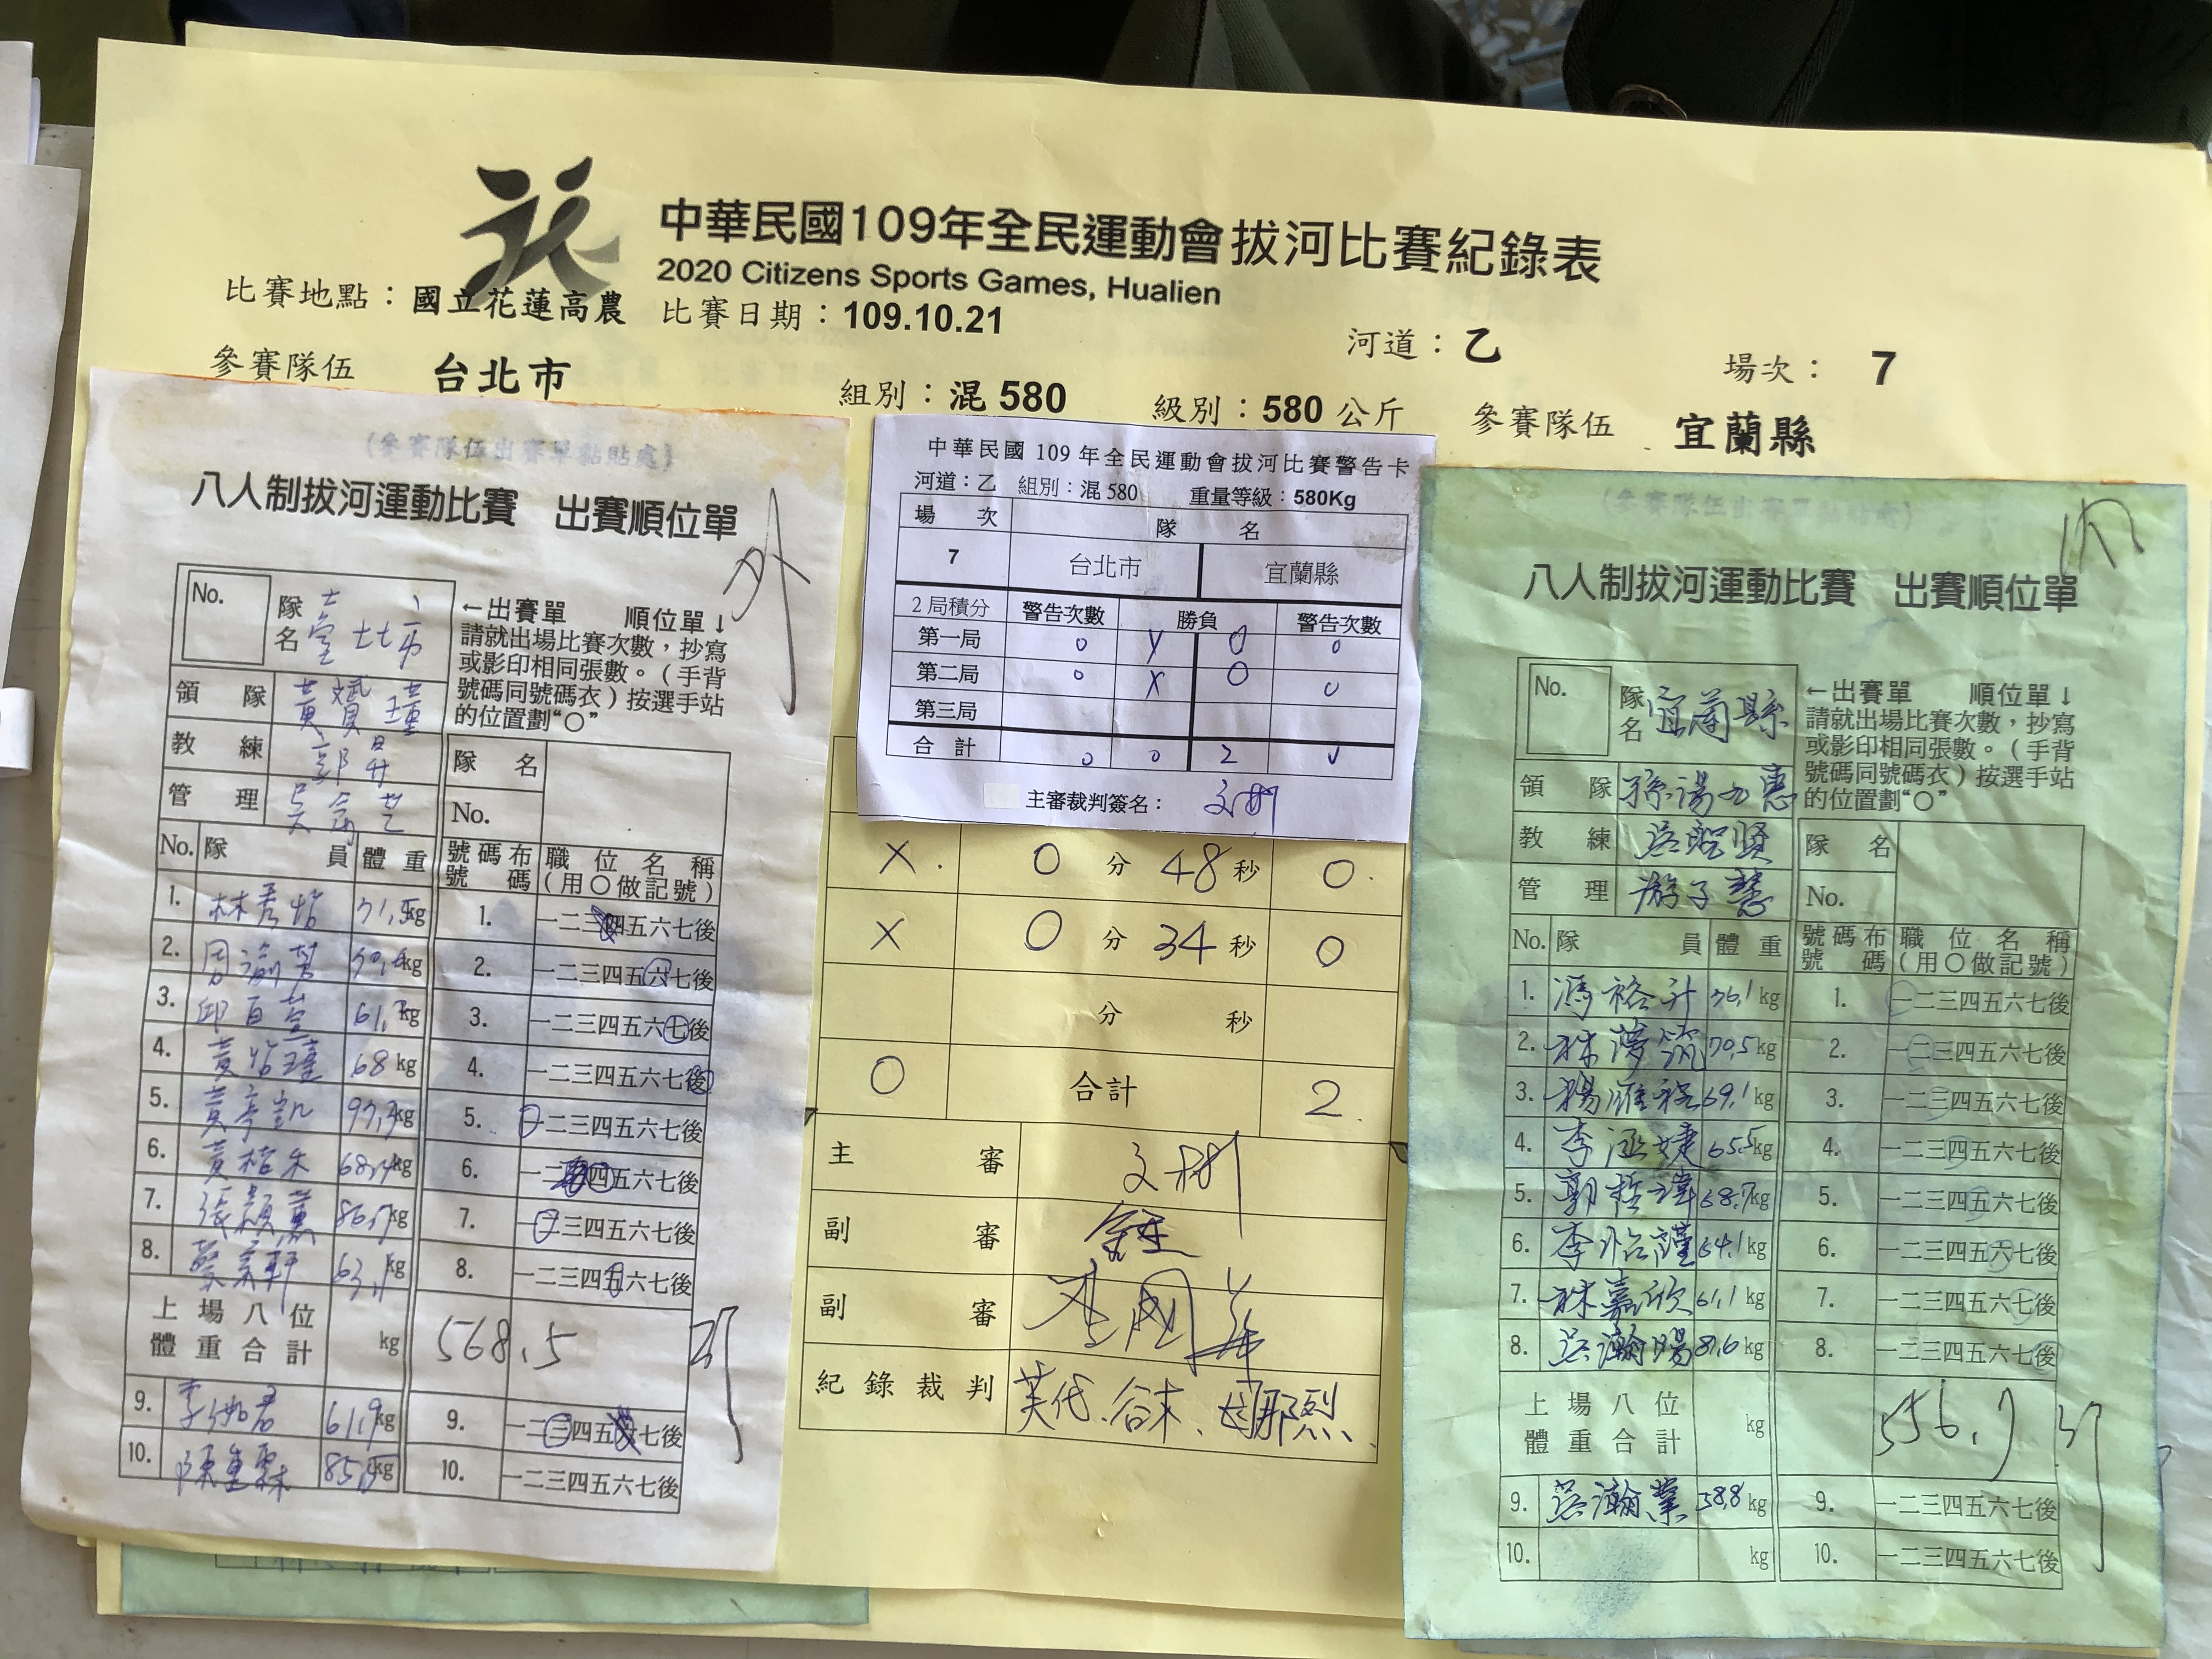 中華民國109年全民運動會拔河比賽紀錄表
2020 Citizens Sports Games, Hualien
比賽地點：國立花蓮高農 比賽日期：109.10.21 河道：乙 場次：7
參賽隊伍 台北市 組別：混580 級別：580公斤 參賽隊伍 宜蘭縣
(參賽隊伍出賽單黏貼處)
八人制拔河運動比賽 出賽順位單
外
No. 隊名 臺北市
←出賽單 順位單↓
請就出場比賽次數，抄寫
或影印相同張數。(手背
號碼同號碼衣)按選手站
的位置劃“○”
領隊 黃贇瑾
教練 郭昇
管理
隊名
No.
No. 隊員 體重 號碼布號碼 職位名稱(用○做記號)
1. 林秀怡 71.5kg 1. 一二三四五六七後
2. kg 2. 一二三四五六七後
3. 邱百萱 61.3kg 3. 一二三四五六七後
4. 黃怡瑾 68 kg 4. 一二三四五六七後
5. 黃亭凱 kg 5. 一二三四五六七後
6. 68.4kg 6. 一二三四五六七後
7. 張顥薰 kg 7. 一二三四五六七後
8. 63.1kg 8. 一二三四五六七後
上場八位體重合計 kg 568.5
9. 61.9kg 9. 一二三四五六七後
10. kg 10. 一二三四五六七後
中華民國 109 年全民運動會拔河比賽警告卡
河道：乙 組別：混 580 重量等級：580Kg
場次 隊名
7 台北市 宜蘭縣
2局積分 警告次數 勝負 警告次數
第一局 0 X 0 0
第二局 0 X 0 0
第三局
合計 0 0 2 0
主審裁判簽名： 文樹
X 0 分 48 秒 0
X 0 分 34 秒 0
分 秒
0 合計 2
主審 文樹
副審
副審
紀錄裁判 芙代、谷末、
(參賽隊伍出賽單黏貼處)
八人制拔河運動比賽 出賽順位單
內
No. 隊名 宜蘭縣
←出賽單 順位單↓
請就出場比賽次數，抄寫
或影印相同張數。(手背
號碼同號碼衣)按選手站
的位置劃“○”
領隊 孫湯玉惠
教練 吳聰賢
管理 游子慧
隊名
No.
No. 隊員 體重 號碼布號碼 職位名稱(用○做記號)
1. 馮裕升 76.1 kg 1. 一二三四五六七後
2. 林夢筑 70.5kg 2. 一二三四五六七後
3. 楊雁稔 69.1 kg 3. 一二三四五六七後
4. 李涵婕 65.5kg 4. 一二三四五六七後
5. 郭哲瑋 68.7kg 5. 一二三四五六七後
6. 李怡謹 64.1kg 6. 一二三四五六七後
7. 林嘉欣 61.1 kg 7. 一二三四五六七後
8. 吳瀚陽 81.6 kg 8. 一二三四五六七後
上場八位體重合計 kg 556.7
9. 吳瀚業 58.8 kg 9. 一二三四五六七後
10. kg 10. 一二三四五六七後